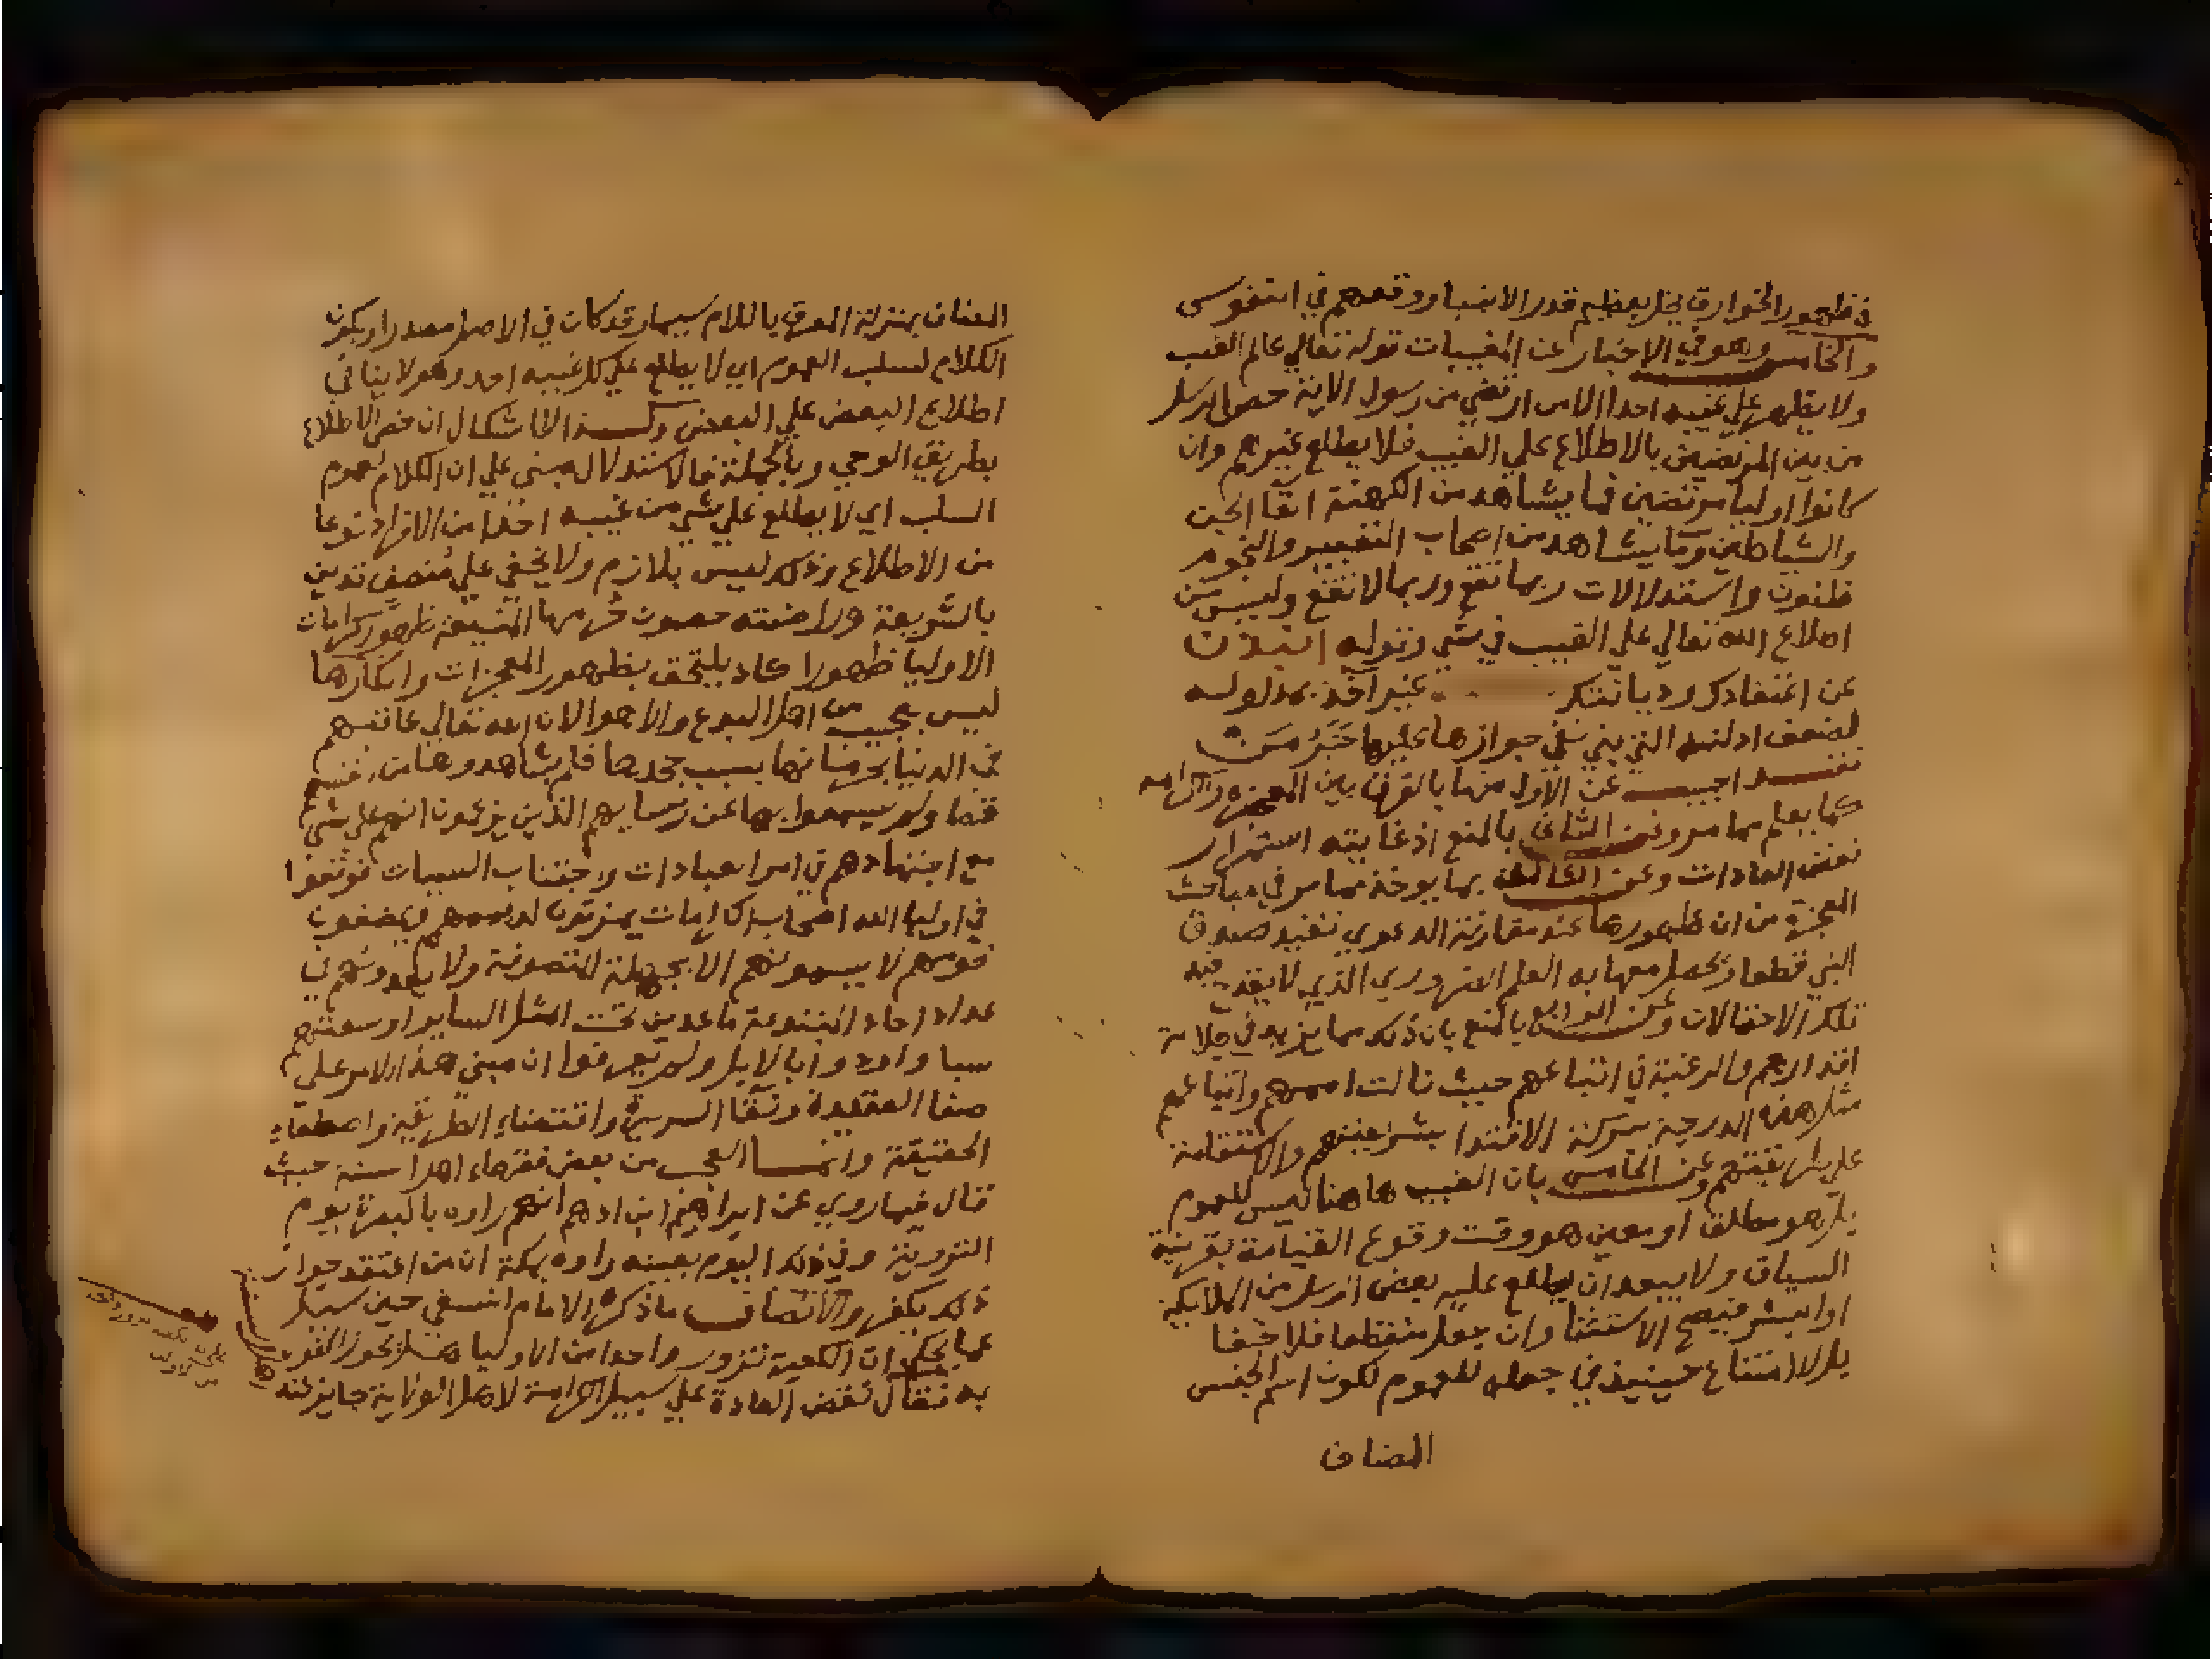 فظهور الخوارق يخل بعظيم قدر الانبيا ووقعهم في النفوس
والخامس وهو في الاخبار عن المغيبات قوله تعالي عالم الغيب
ولا يظهر علي غيبه احدا الا من ارتضي من رسول الاية خص الرسل
من بين المرتضين بالاطلاع علي الغيب فلا يطلع غيرهم وان
كانوا اوليا مرتضين فما يشاهد من الكهنة القا الجن
والشياطين وما يشاهد من اصحاب التعبير والنجوم
ظنون واستدلالات ربما تقع وربما لا تقع وليس من
اطلاع الله تعالي علي الغيب في شي وقوله انبذن
عن اعتقادك رد يا تنكر غير اخذ بمدلوله
لضعف ادلته التي بني نفي جوازها عليها خبر من
اجيب عن الاول منها بالفرق بين المعجزة والكرامة
كما يعلم مما مر وعن الثاني بالمنع اذ غايته استمرار
نقض العادات وعن الثالث بما يوخذ مما مر في مباحث
المعجزة من ان ظهورها عند مقارنة الدعوي تفيد صدق
النبي قطعا وتحصل معها به العلم الضروري الذي لا يقدح فيه
تلك الاحتمالات وعن الرابع بالمنع بان ذلك مما يزيد في جلالة
اقدارهم والرغبة في اتباعهم حيث نالت اممهم واتباعهم
مثل هذه الدرجة ببركة الاقتدا بشريعتهم والاستقامة
علي طريقتهم وعن الخامس بان الغيب هاهنا ليس للعموم
بل هو مطلق او معين هو وقت وقوع القيامة بقرينة
السياق ولا يبعد ان يطلع عليه بعض الرسل من الملايكة
او البشر فيصح الاستثنا وان جعل منقطعا فلا خفا
بل لا امتناع حينيذ في جعله للعموم لكون اسم الجنس
المضاف
المضاف بمنزلة المعرف باللام سيما وقد كان في الاصل مصدرا ويكون
الكلام لسلب العموم اي لا يطلع علي كل غيبه احد وهو لا ينافي
اطلاع البعض علي البعض وكذا لا اشكال ان خص الاطلاع
بطريق الوحي وبالجملة فالاستدلال مبني علي ان الكلام لعموم
السلب اي لا يطلع علي شي من غيبه احدا من الافراد نوعا
من الاطلاع وذلك ليس بلازم ولا يخفي علي منصف تدين
بالشريعة ولا حصون حرمها المنيعة ظهور كرامات
الاوليا ظهورا كاد يلتحق بظهور المعجزات وانكارها
ليس بعجيب من اهل البدع والاهوا لان الله تعالي عاقبهم
في الدنيا بحرمانها بسبب جحدها فلم يشاهدوها من انفسهم
قط ولم يسمعوا بها عن رسايهم الذين يزعمون انهم علي شي
مع اجتهادهم في امر العبادات واجتناب السيات فوقعوا
في اوليا الله اصحاب الكرامات يمزقون اديمهم ويمضغون
لحومهم لا يسمونهم الا بجهلة المتصوفة ولا يعدونهم في
عداد احاد المبتدعة قاعدين تحت المثل الساير اوسعتهم
سبا واودوا بالابل ولم يعرفوا ان مبني هذا الامر علي
صفا العقيدة ونقا السريرة واقتفاء الطريقة واصطفاء
الحقيقة وانما العجب من بعض فقهاء اهل السنة حيث
قال فيما روي عن ابراهيم ابن ادهم انهم راوه بالبصرة يوم
التروية وفي ذلك اليوم بعينه راوه بمكة ان من اعتقد جواز
ذلك يكفر والانصاف ما ذكره الامام النسفي حين سيل
عما يحكي ان الكعبة تزور واحدا من الاوليا هل يجوز القول
به فقال نقض العادة علي سبيل الكرامة لاهل الولاية جايز عند